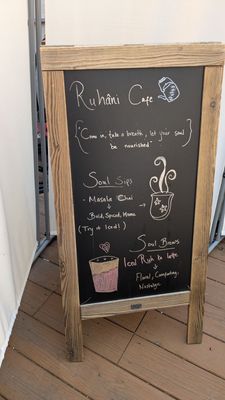 Ruhâni Cafe
"Come in, take a breath, let your soul
be nourished"
Soul Sips
- Masala Chai
Bold, Spiced, Home
(Try it Iced!)
Soul Brews
Iced Rooh be latte
Floral, Comforting,
Nostalgia